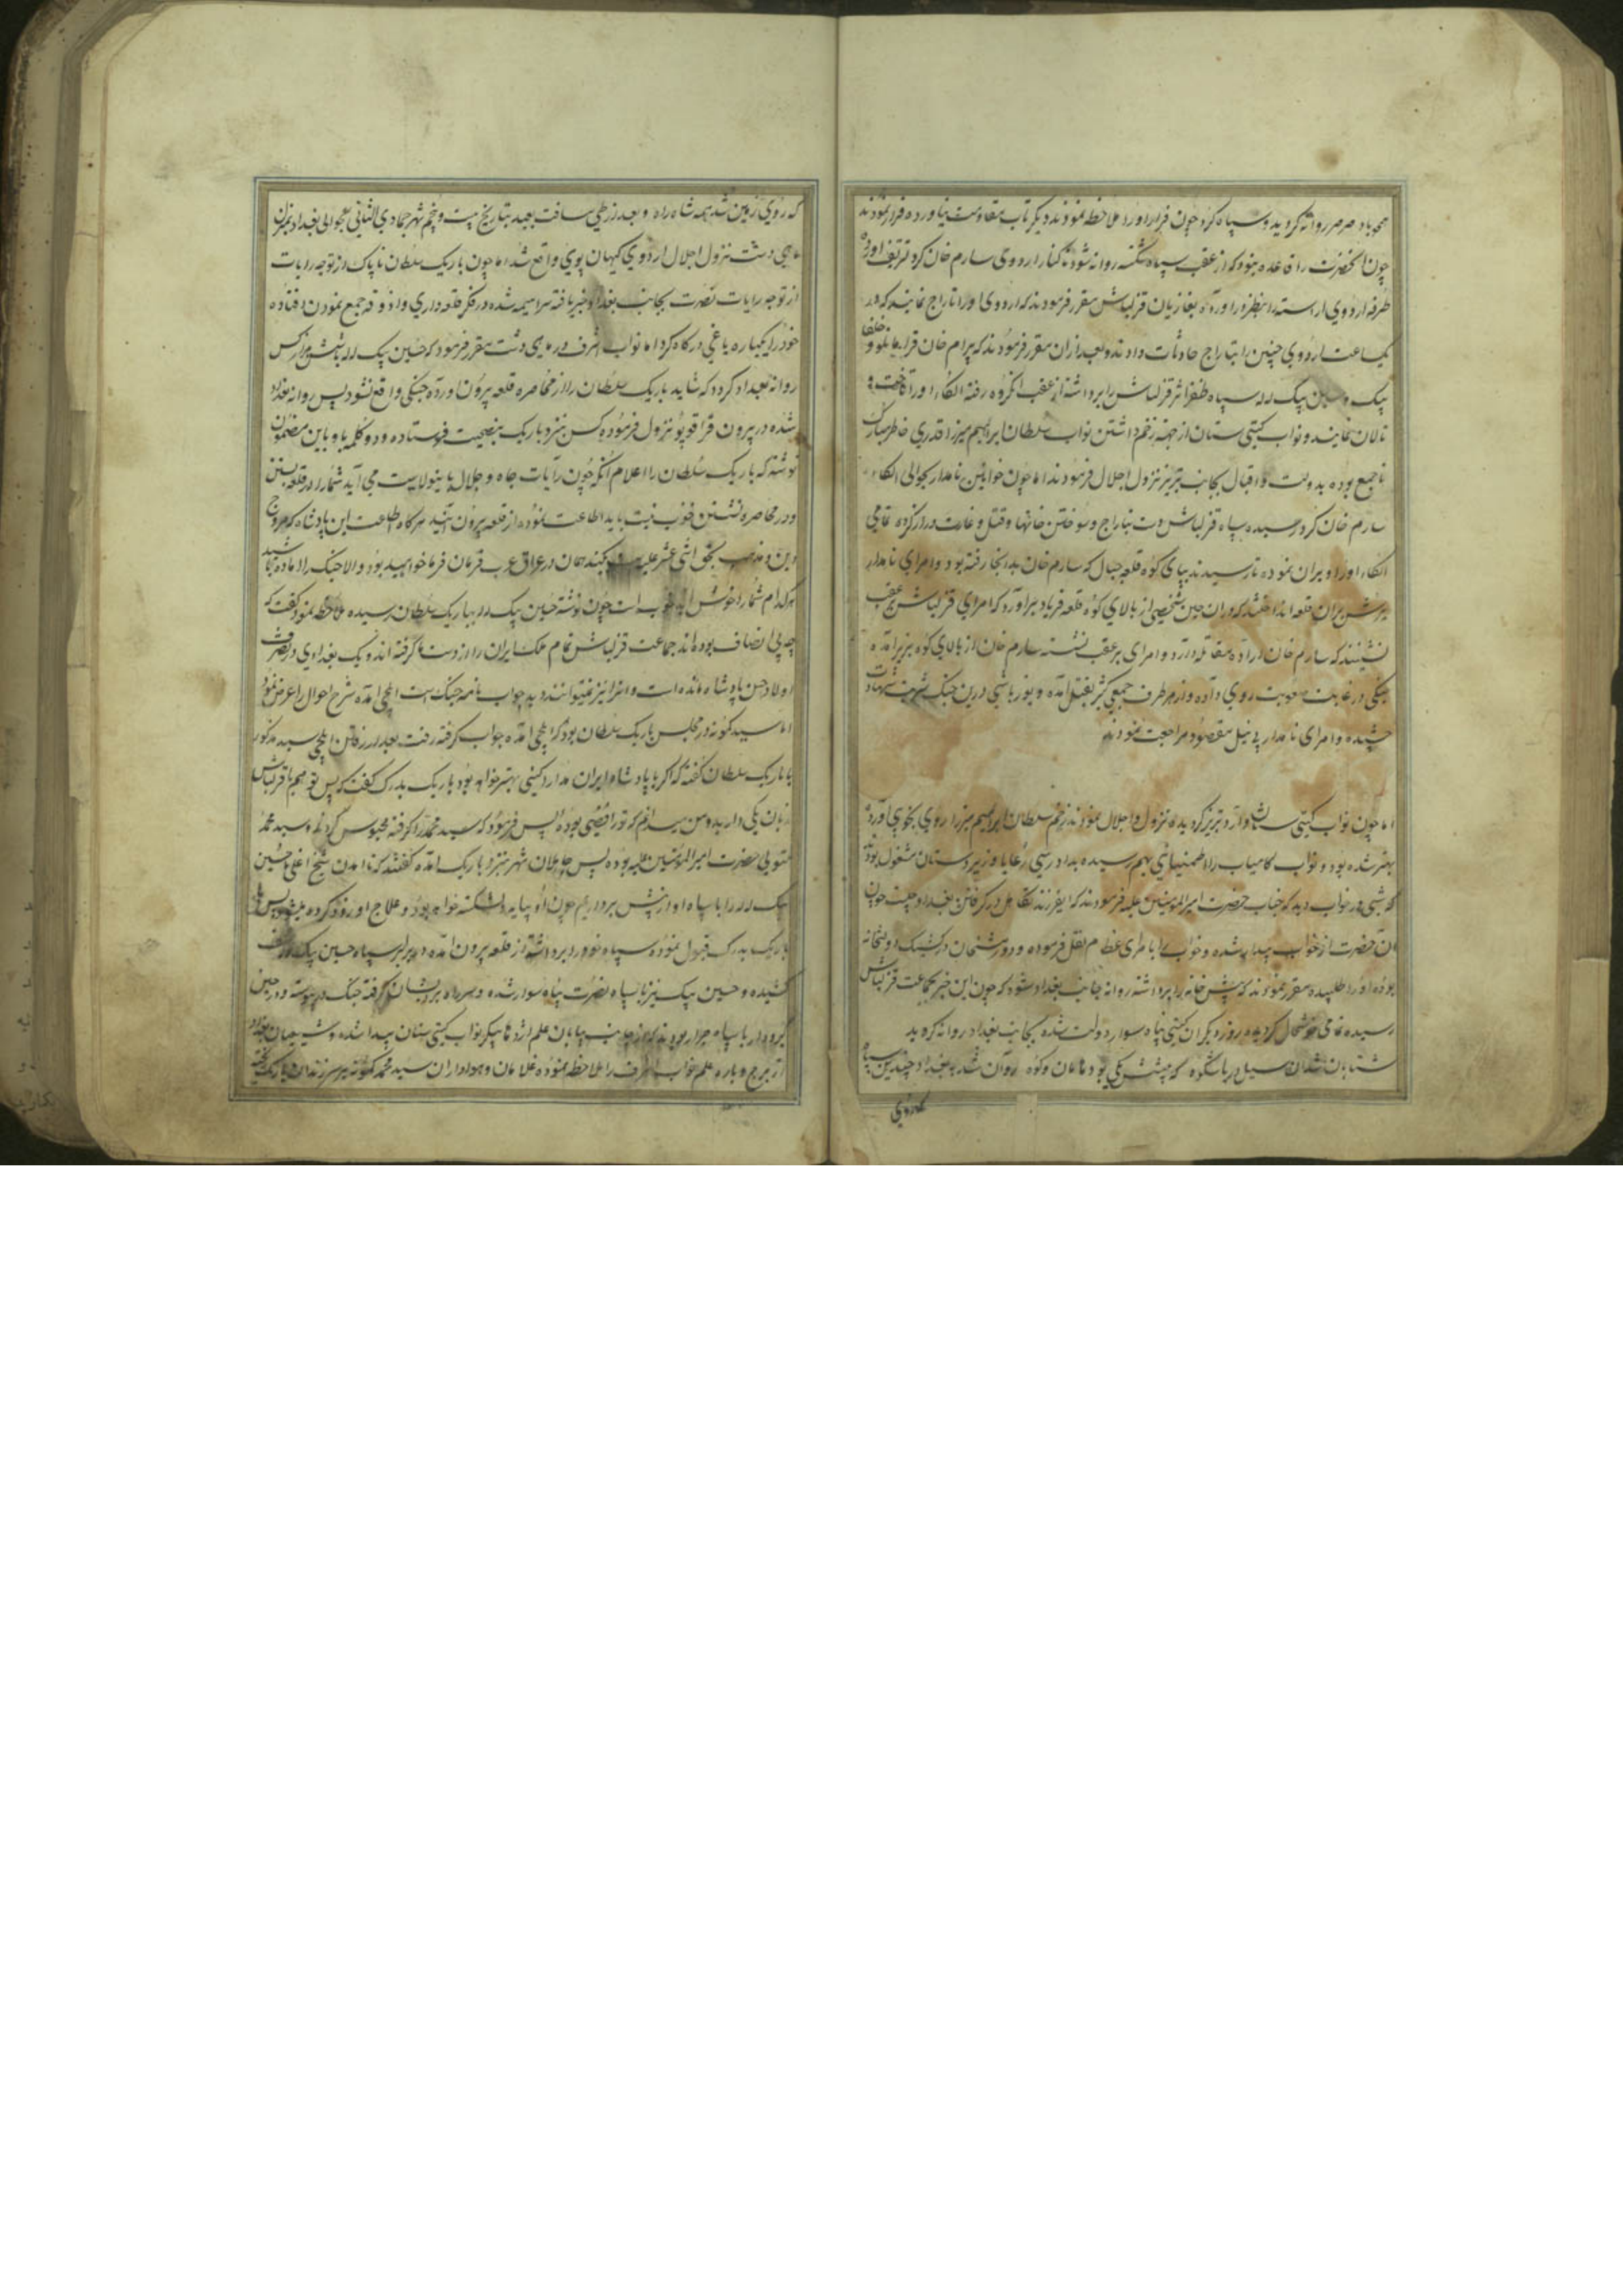 همچو باد صرصر روانه گردید و سپاه کرد چون فرار او را ملاحظه نمودند دیگر تاب مقاومت نیاورده فرار نمودند
چون آنحضرت را قاعده نبود که از عقب سپاه شکسته روانه شود تا کنار اردوی سارم خان کرد تشریف آورده
طرفه اردوی آراسته را بنظر در آورده بغازیان قزلباش مقرر فرمودند که اردوی او را تاراج نمایند که در
یکساعت اردوی چنین را بتاراج حادثات دادند و بعد از آن مقرر فرمودند که بیرام خان قرامانلو و خلفا
بیک و حسین بیک لله سپاه ظفر اثر قزلباش را برداشته از عقب آنگروه رفته الکاء او را تاخت و
تالان نمایند و نواب گیتی ستان از جهة زخم داشتن نواب سلطان ابراهیم میرزا قدری خاطر مبارک
ناجمع بوده بدولت و اقبال بجانب تبریز نزول اجلال فرمودند اما چون خوانین نامدار بحوالی الکاء
سارم خان کرد رسیده سپاه قزلباش دست بتاراج و سوختن خانها و قتل و غارت دراز کرده تمامی
الکاء او را ویران نموده تا رسیدند بپای کوه قلعه جبال که سارم خان بدانجا رفته بود و امرای نامدار
یورش بر آن قلعه انداختند که در آن حین شخصی از بالای کوه قلعه فریاد برآورد که امرای قزلباش عقب
نشینند که سارم خان اراده مقاتله دارد و امرای بر عقب نشسته سارم خان از بالای کوه بزیر آمده
جنگی در غایت صعوبت روی داده و از هر طرف جمعی کثیر بقتل آمده و یوزباشی درین جنگ شربت شهادت
چشیده و امرای نامدار بی نیل مقصود مراجعت نمودند
اما چون نواب گیتی ستان وارد تبریز گردیده نزول اجلال نمودند زخم سلطان ابراهیم میرزا روی بخوبی آورده
بهتر شده بود و نواب کامیاب را اطمینانی بهم رسیده بدادرسی رعایا و زیردستان مشغول بود
که شبی در خواب دید که جناب حضرت امیرالمؤمنین علیه فرمودند که ای فرزند تکاهل در گرفتن بغداد چیست چون
آن حضرت از خواب بیدار شده و خواب را با امرای عظام نقل فرموده و دورمشخان در کشیک دولتخانه
بوده او را طلبیده مقرر نمودند که پیش خانه را برداشته روانه جانب بغداد شود که چون این خبر بجماعت قزلباش
رسیده تمامی خوشحال گردیده روز دیگر آن گیتی پناه سوار دولت شده بجانب بغداد روانه گردید
شتابان شد آن سیل دریا شکوه که پیشش یکی بود هامان و کوه روان شد ببغداد چندین سپاه
که روی
که روی زمین شد همه شاه راه و بعد از طی مسافت بعیده بتاریخ بیست و پنجم شهر جمادی الثانی بحوالی بغداد بمنزل
ماهی دشت نزول اجلال اردوی کیهان پوی واقع شد اما چون باریک سلطان ناپاک از توجه رایات
از توجه رایات نصرت بجانب بغداد خبر یافته سراسیمه شده در فکر قلعه داری و آذوقه جمع نمودن افتاده
خود را یکباره یاغی درگاه کرد اما نواب اشرف در ماهی دشت مقرر فرمود که حسین بیک لله با شش هزار کس
روانه بغداد گردد که شاید باریک سلطان را از محاصره قلعه بیرون آورده جنگی واقع نشود پس روانه بغداد
شده در بیرون قراقوپو نزول فرموده کس بنزد باریک بنصیحت فرستاده و دو کلمه باو باین مضمون
نوشته که باریک سلطان را اعلام آنکه چون رایات جاه و جلال باینولایت می آید شما را در قلعه بستن
و در محاصره نشستن خوب نیست باید اطاعت نموده از قلعه بیرون آئید هر گاه اطاعت این پادشاه که مروج
دین و مذهب بحق اثنی عشر علیه کنید همان در عراق عرب فرمان فرما خواهید بود و الا جنگ را آماده باشید
هر کدام شما را خوش آید خوب است چون نوشته حسین بیک لله بباریک سلطان رسیده ملاحظه نمود گفت که
چه بی انصاف بوده اند جماعت قزلباش تمام ملک ایران را از دست ما گرفته اند و یک بغدادی در تصرف
اولاد حسن پادشاه مانده است و آنرا نیز نمیتوانند دید جواب نامه جنگ است ایلچی آمده شرح احوال را عرض نمود
اما سید کمونه در مجلس باریک سلطان بود که ایلچی آمده جواب گرفته رفت بعد از رفتن ایلچی سید مذکور
با باریک سلطان گفته که اگر با پادشاه ایران مدارا کنی بهتر خواهد بود باریک بدرک گفت که پس تو هم با قزلباش
زبان یکی دارید و من میدانم که تو رافضی بوده پس فرمود که سید محمد را گرفته محبوس گردید و سید محمد
متولی حضرت امیرالمؤمنین علیه بوده پس جاهلان شهر بنزد باریک آمده گفتند که تا آمدن شیخ اغلی حسین
بیک لله را با سپاه او از پیش برداریم چون او بیاید دلشکسته خواهد بود و علاج او زود کرده میشود پس
باریک بدرک قبول نموده سپاه خود را برداشته از قلعه بیرون آمده در برابر سپاه حسین بیک صف
کشیده و حسین بیک نیز با سپاه نصرت پناه سوار شده و سر راه بر ایشان گرفته جنگ در پیوسته و در حین
گیر و دار با سپاه جرار بودند که از جانب بیابان علم اژدها پیکر نواب گیتی ستان پیدا شده و شیعیان بغداد
از برج و باره علم نواب اشرف را ملاحظه نموده غلامان و هواداران سید محمد کمونه بر سر زندان باریک